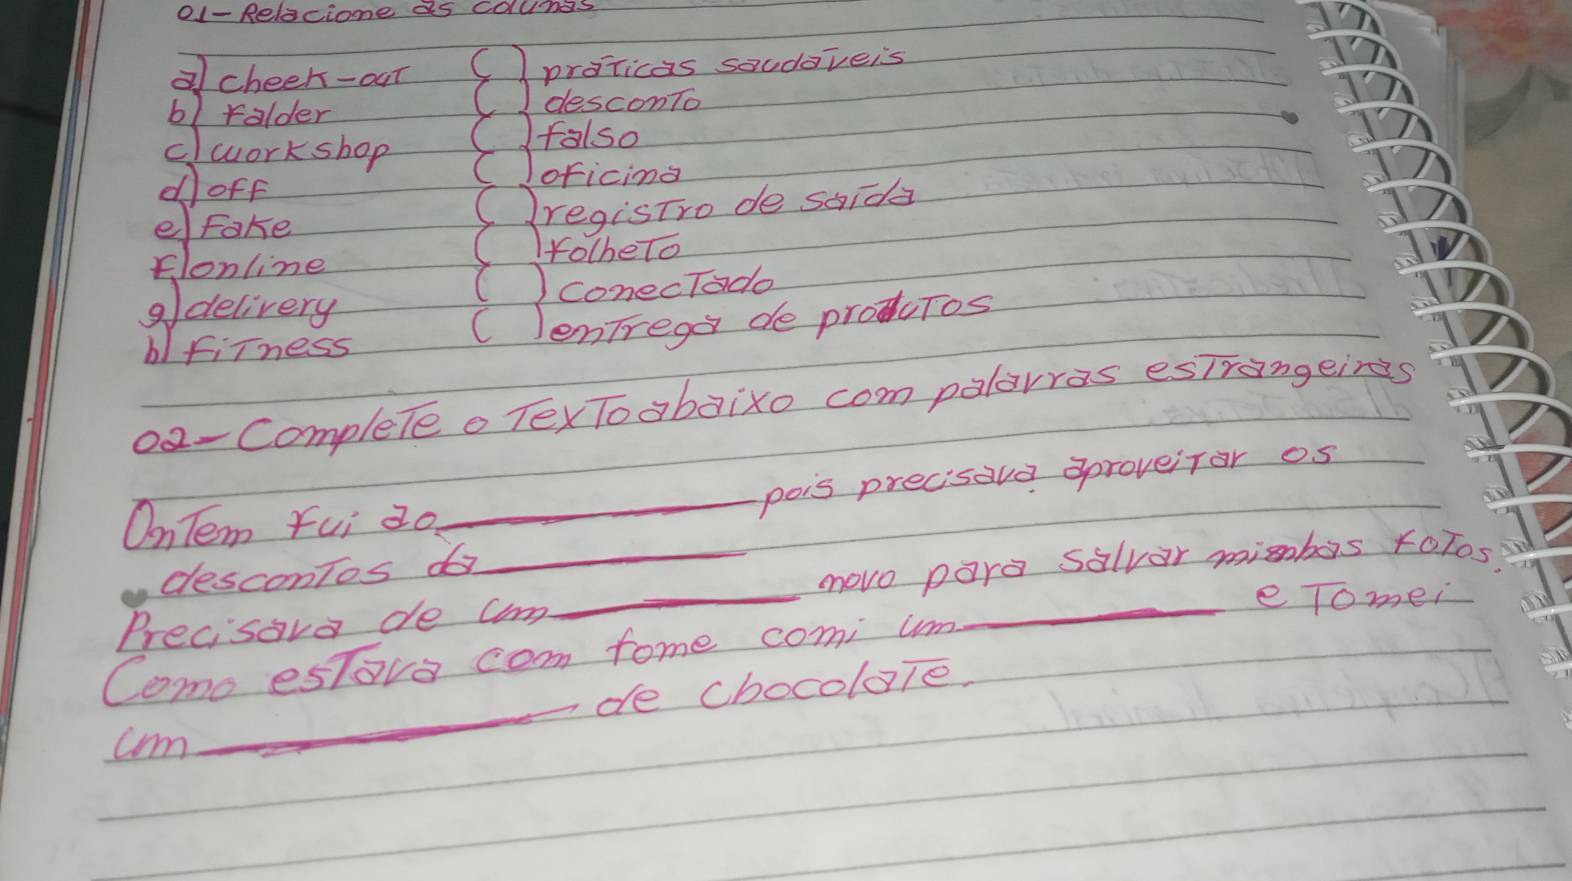 01- Relacione as colunas
a) check-out ( ) práticas saudáveis
b) falder ( ) desconto
c) workshop ( ) falso
d) off ( ) oficina
e) Fake ( ) registro de saída
f) online ( ) folheto
g) delivery ( ) conectado
h) fitness ( ) entrega de produtos
02- Complete o Texto abaixo com palavras estrangeiras
Ontem fui ao ________ pois precisava aproveitar os
descontos da ________
Precisava de um ________ novo para salvar minhas fotos.
Como estava com fome comi um ________ e Tomei
um ________ de chocolate.